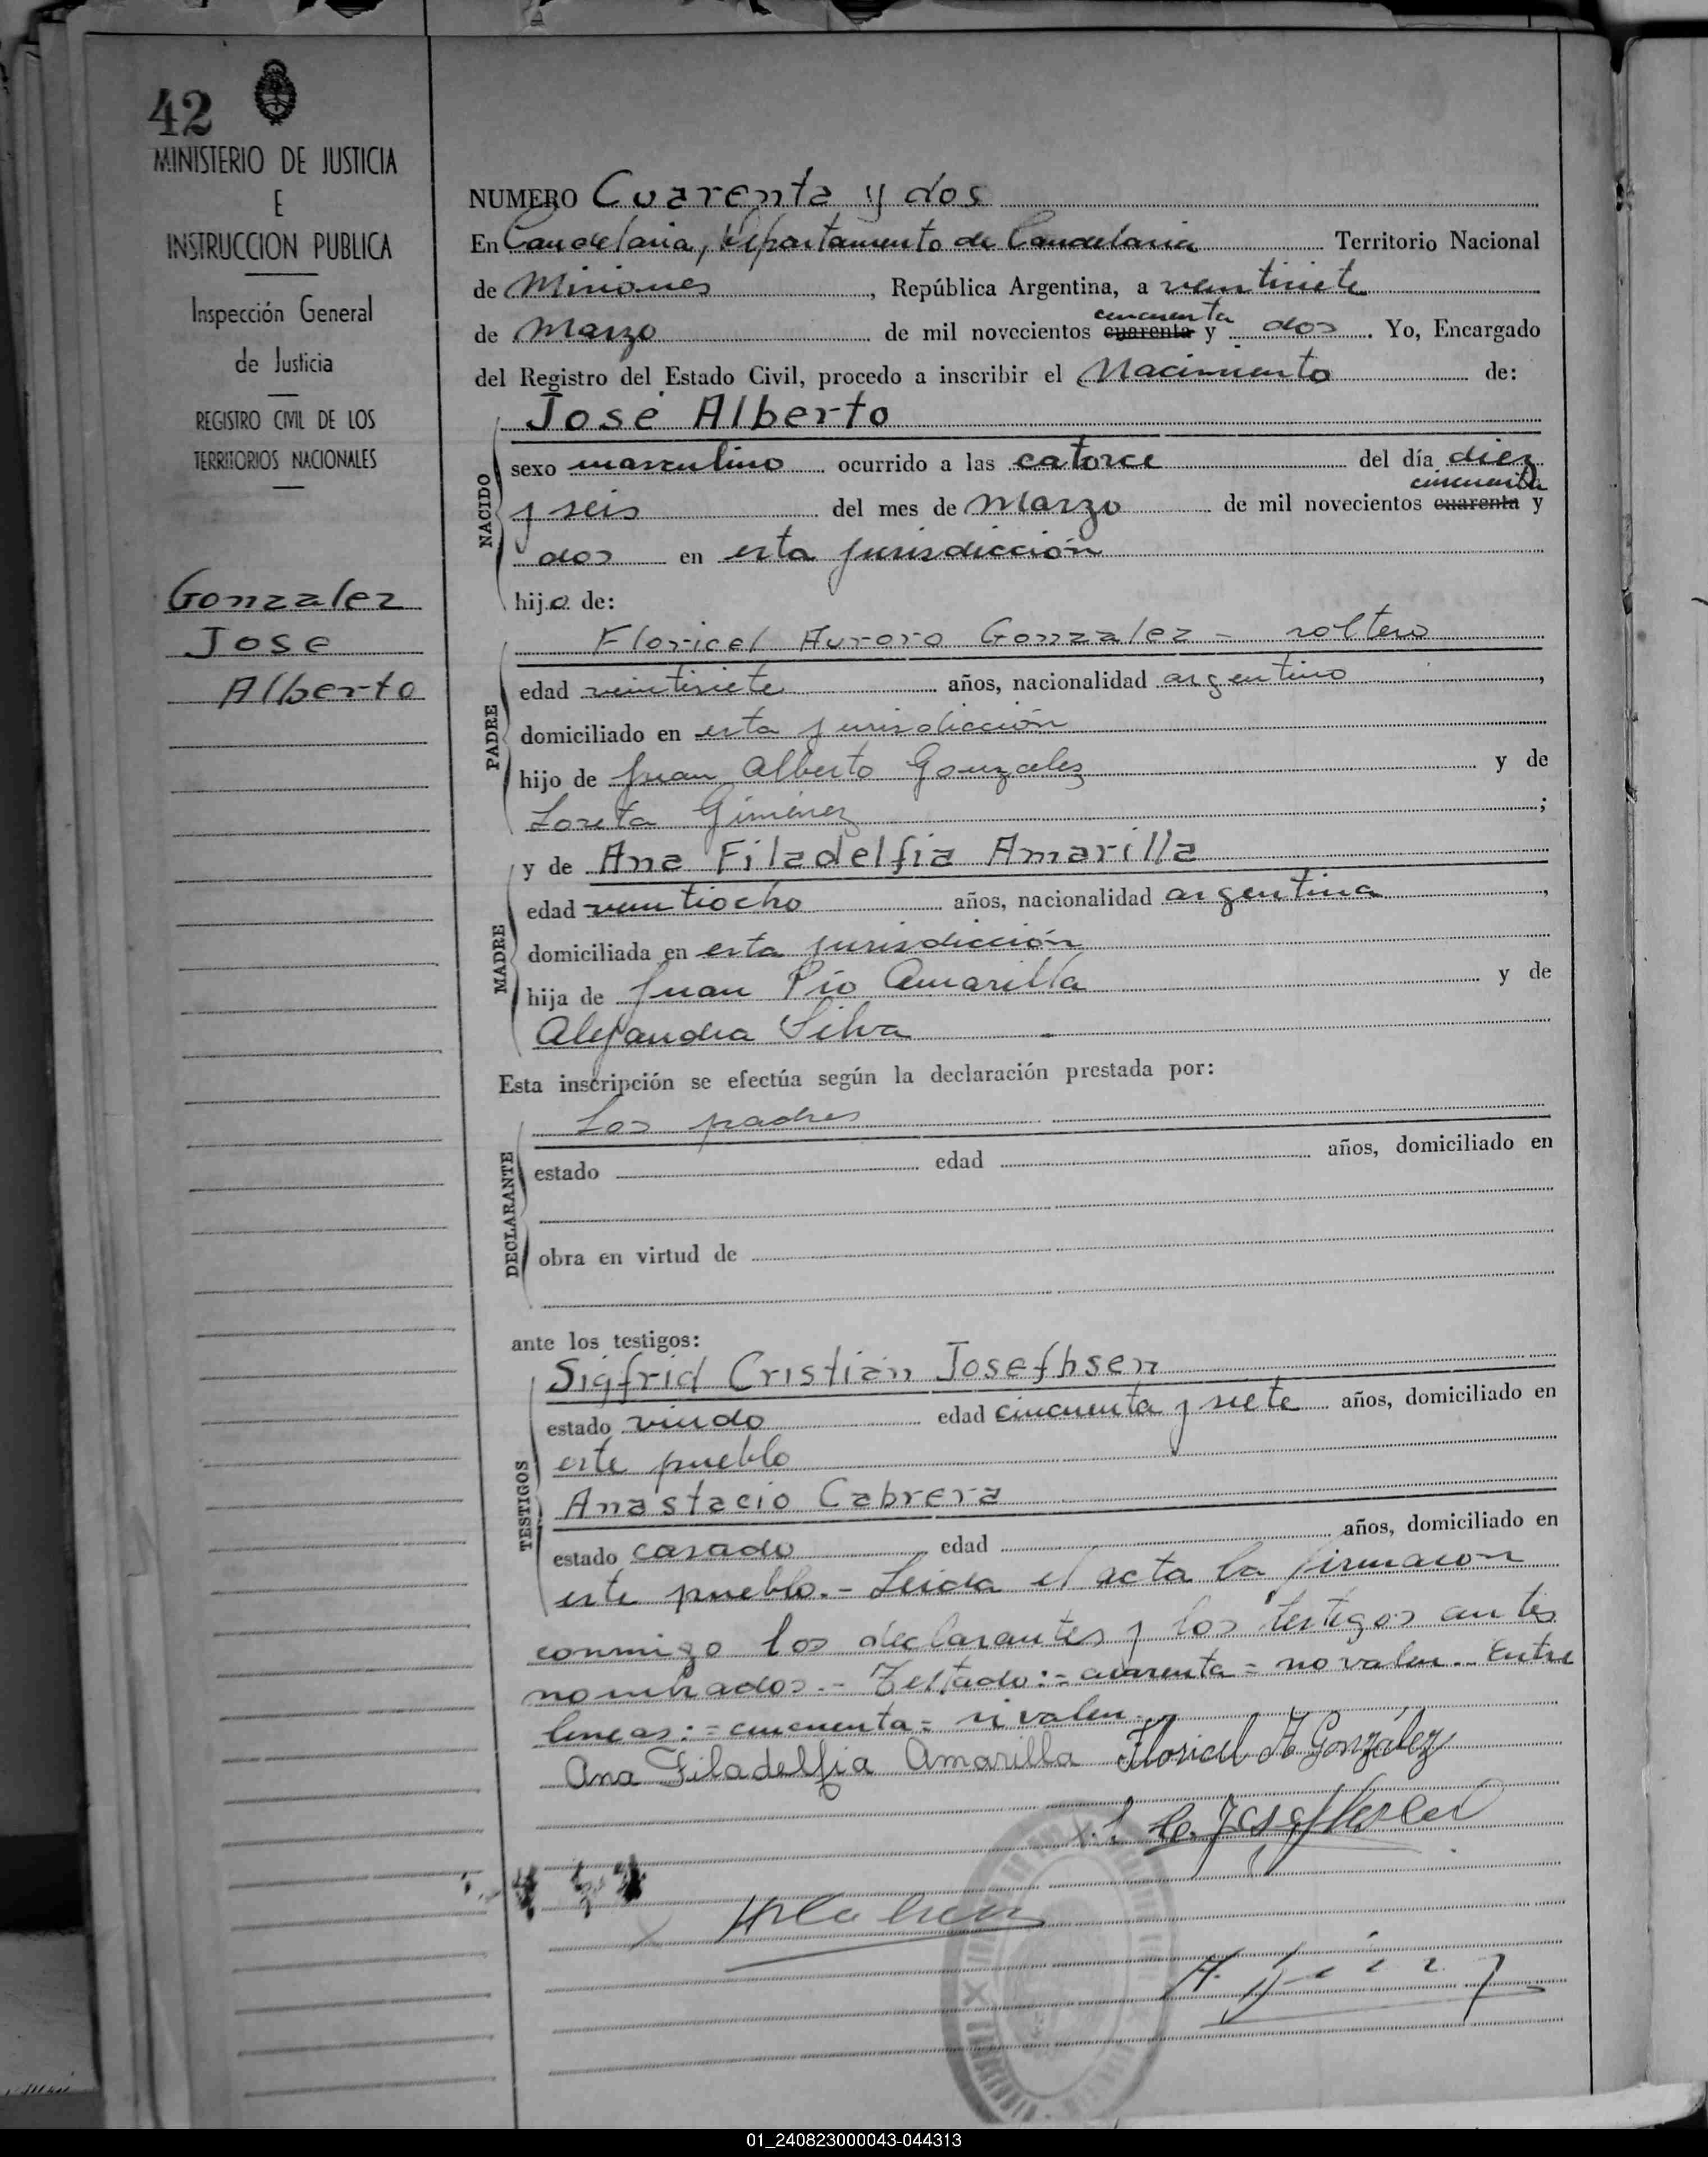 42
MINISTERIO DE JUSTICIA
E
INSTRUCCION PUBLICA
Inspección General
de Justicia
REGISTRO CIVIL DE LOS
TERRITORIOS NACIONALES
Gonzalez
Jose
Alberto
NUMERO Cuarenta y dos
En Candelaria, Departamento de Candelaria Territorio Nacional
de Misiones, República Argentina, a veintisiete
cincuenta
de Marzo de mil novecientos cuarenta y dos. Yo, Encargado
del Registro del Estado Civil, procedo a inscribir el Nacimiento de:
José Alberto
NACIDO
sexo masculino ocurrido a las catorce del día diez
cincuenta
y seis del mes de Marzo de mil novecientos cuarenta y
dos en esta jurisdicción
hijo de:
Floricel Auroro Gonzalez - soltero
PADRE
edad veintisiete años, nacionalidad argentino,
domiciliado en esta jurisdicción
hijo de Juan Alberto Gonzalez y de
Loreta Giménez;
y de Ana Filadelfia Amarilla
MADRE
edad veintiocho años, nacionalidad argentina,
domiciliada en esta jurisdicción
hija de Juan Pío Amarilla y de
Alejandra Silva
Esta inscripción se efectúa según la declaración prestada por:
Los padres
DECLARANTE
estado edad años, domiciliado en
obra en virtud de
ante los testigos:
TESTIGOS
Sigfrid Cristián Josefhsen
estado viudo edad cincuenta y siete años, domiciliado en
este pueblo
Anastacio Cabrera
estado casado edad años, domiciliado en
este pueblo.- Leida el acta la firmaron
conmigo los declarantes y los testigos antes
nombrados.- Testado:- cuarenta = no valen.- Entre
lineas: = cincuenta = si valen.-
Ana Filadelfia Amarilla Floricel A González
01_240823000043-044313